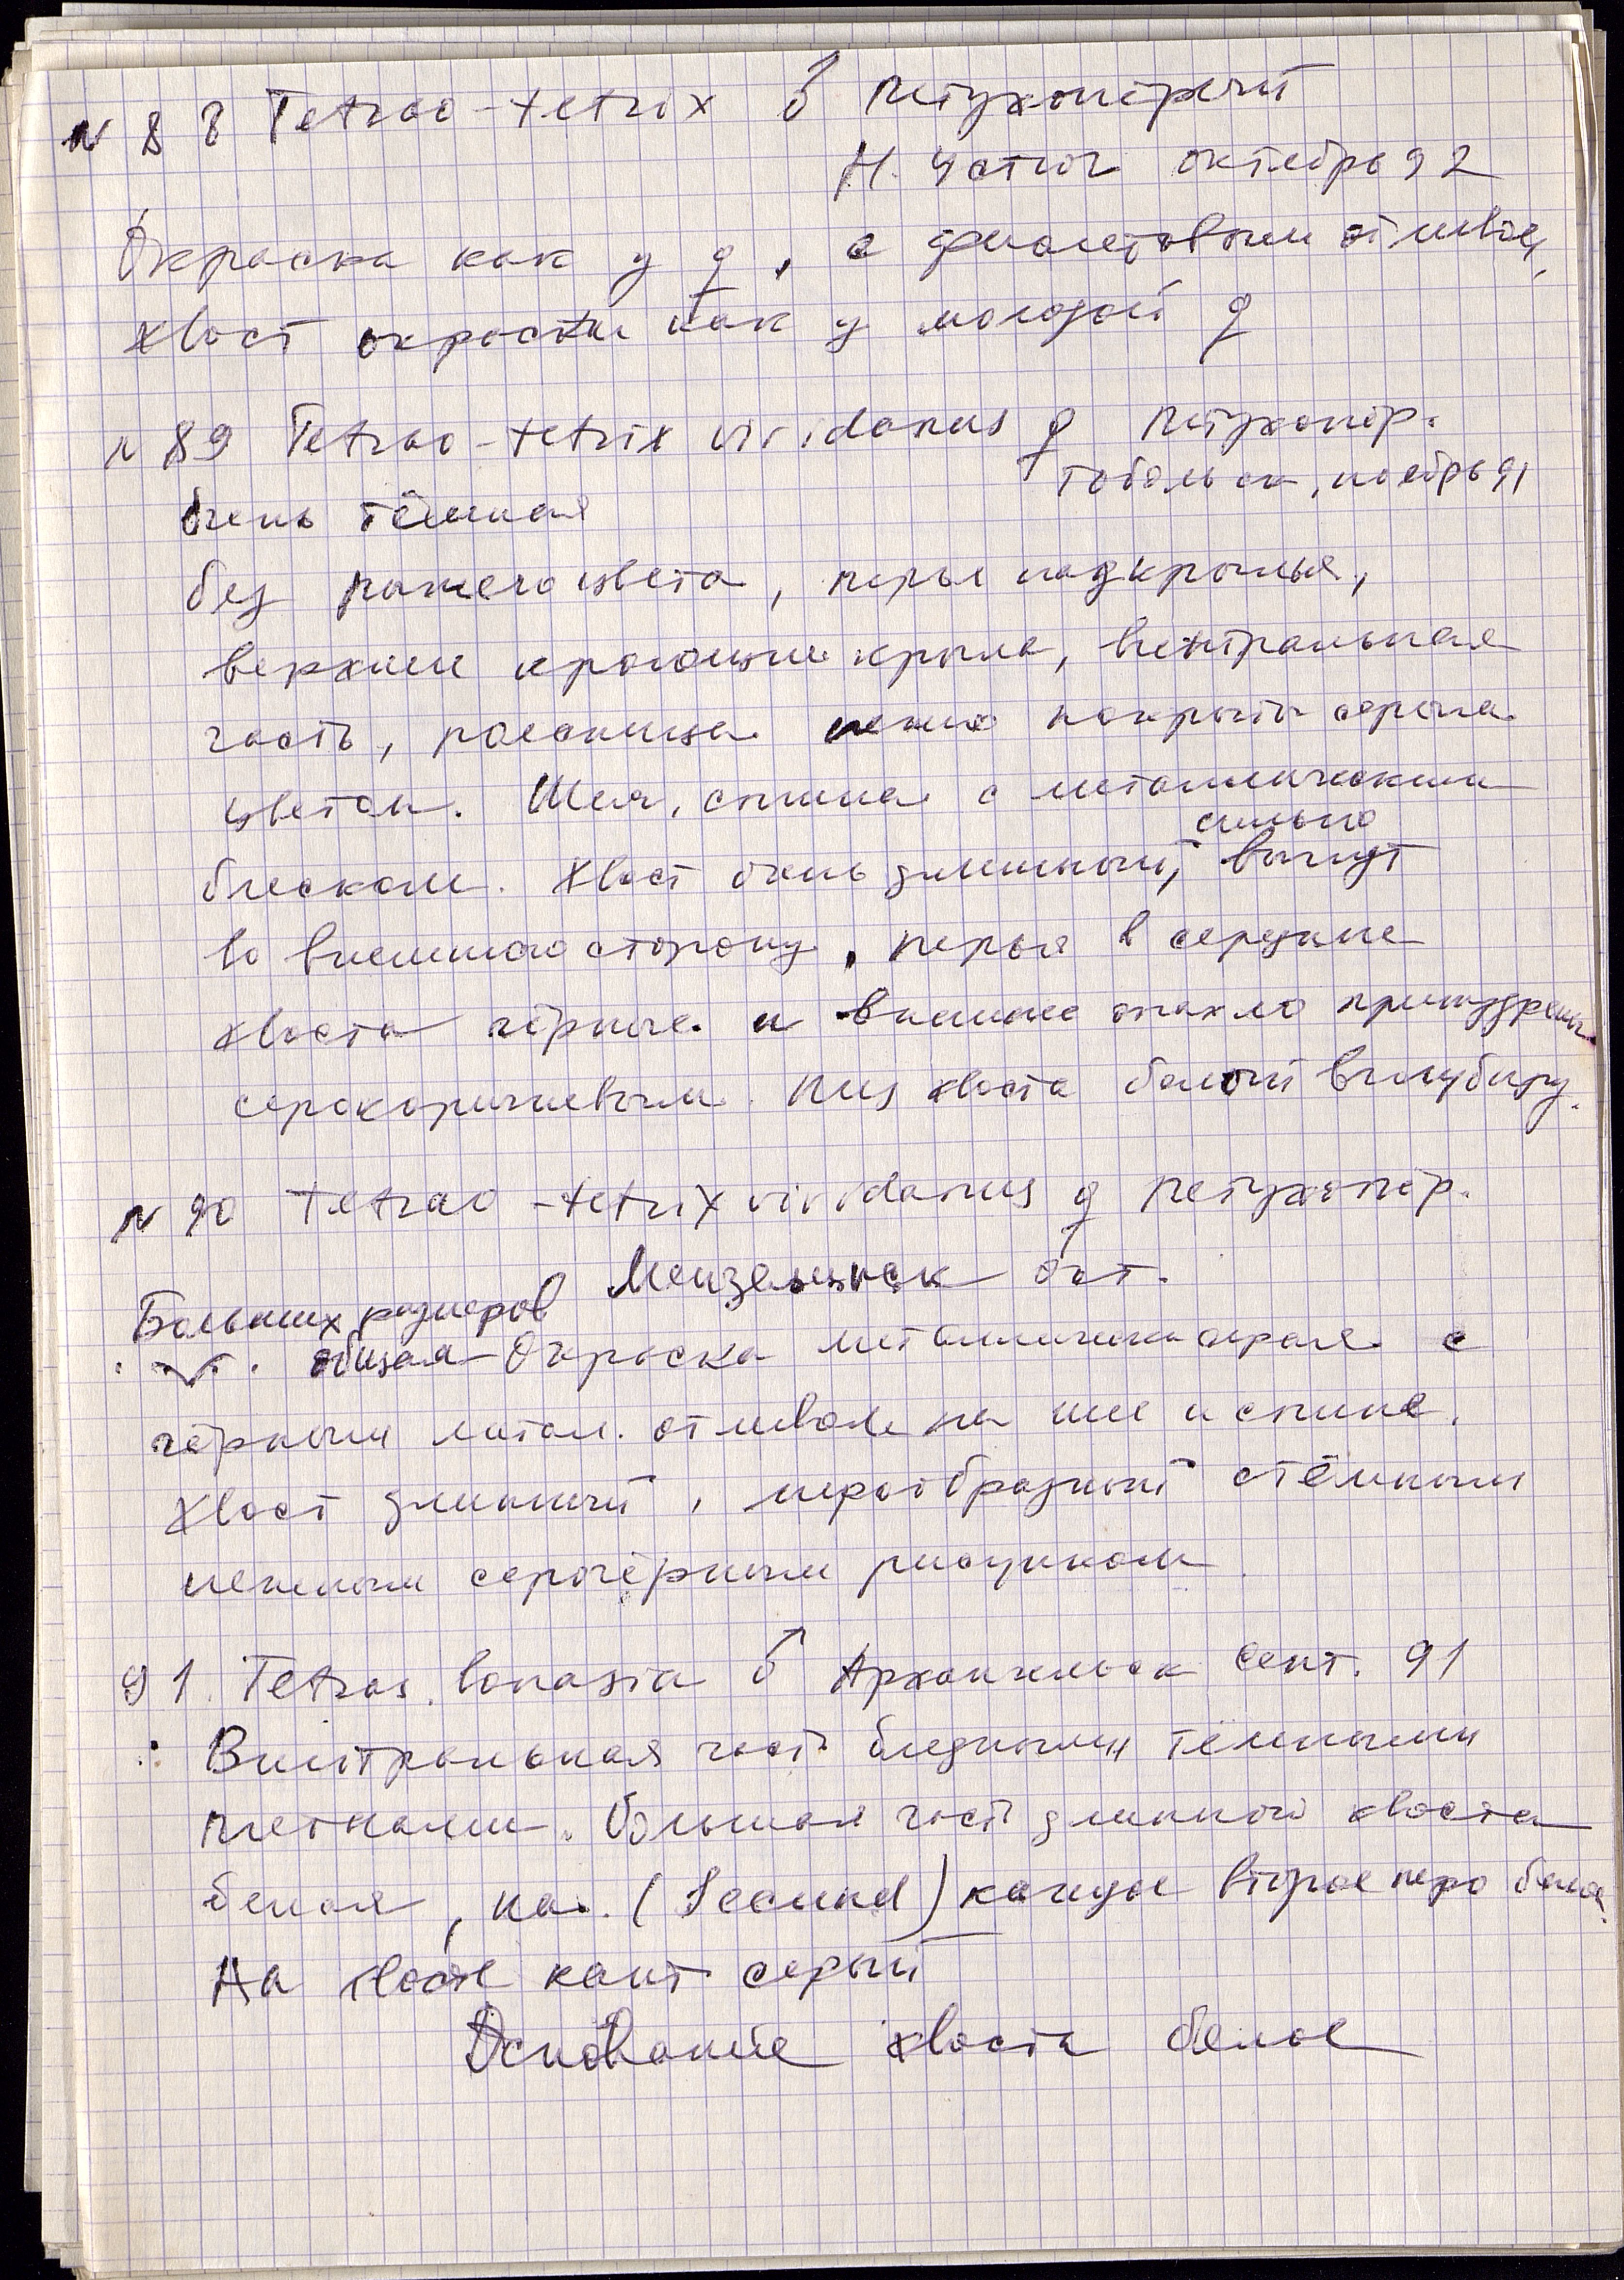 N 88 Tetrao-tetrix ♂ Петухопёрый
Н. Устюг октябрь 92
Окраска как у ♀, с фиолетовым отливом,
хвост окраски как у молодой ♀
N 89 Tetrao-tetrix viridanus ♀ Петухопёр.
Тобольск, ноябрь 91
Очень тёмная
без рыжего цвета, перья подкрылья,
верхние кроющие крыла, вентральная
часть, поясница нежно покрыты серым
цветом. Шея, спина с металлическим
сильно
блеском. Хвост очень длинный, выгнут
во внешнюю сторону, перья в середине
хвоста чёрные и внешнее опахло припудрены
серокоричневым. Низ хвоста белый
N 90 Tetrao-tetrix viridanus ♀ петухопёр.
Мензелинск окт.
Больших размеров
общая Окраска металлически серая с
чёрным метал. отливом на шее и спине.
Хвост длинный, лирообразный с тёмным
нежным серочёрным рисунком
91. Tetras. bonasia ♂ Архангельск Сент. 91
Вентральная часть бледными тёмными
пятнами. Большая часть длинного хвоста
белая, на (Secund) каждое второе перо белое.
На хвосте кант серый
Основание хвоста белое